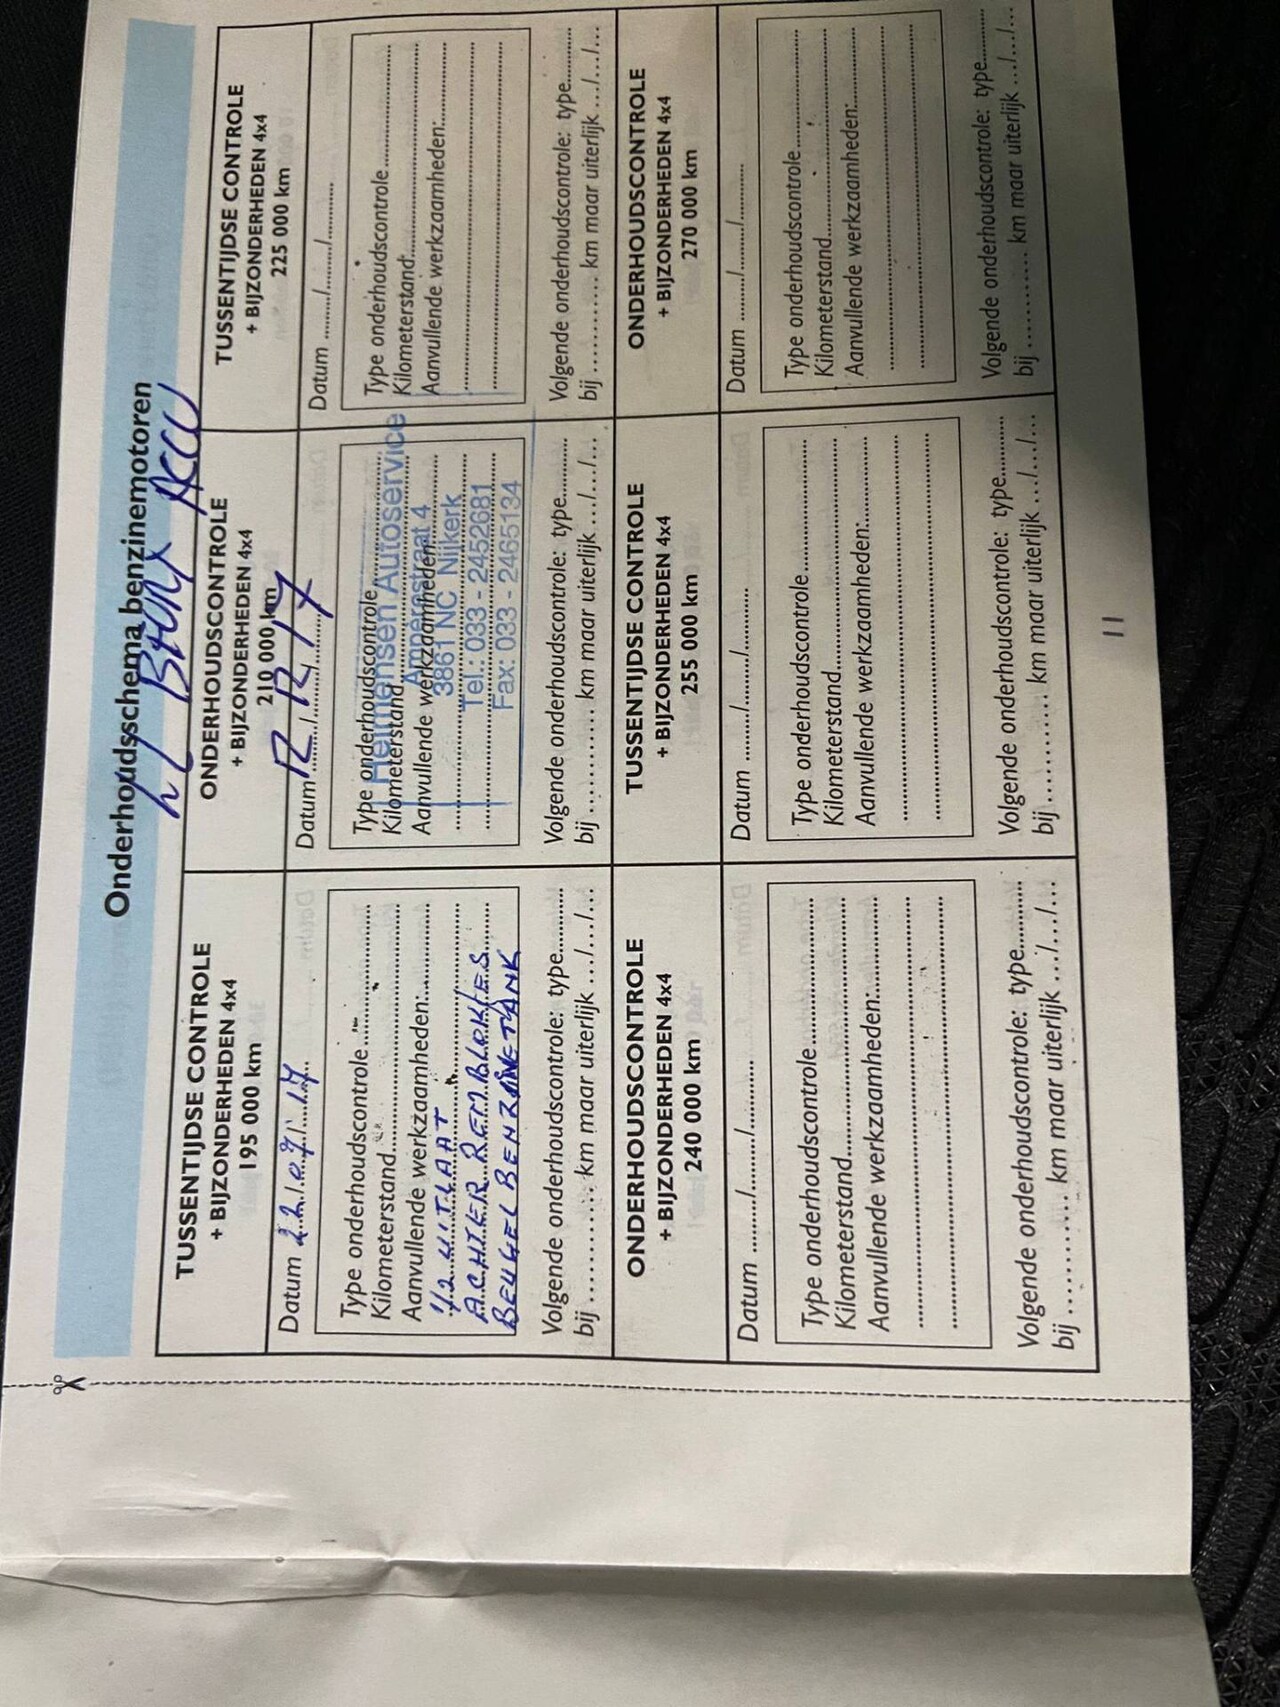 Onderhoudsschema benzinemotoren
ACCU
TUSSENTIJDSE CONTROLE
+ BIJZONDERHEDEN 4x4
195 000 km
Datum 22/07/17
Type onderhoudscontrole
Kilometerstand
Aanvullende werkzaamheden:
1/2 UITLAAT
ACHTER REMBLOKJES
BEUGEL BENZINETANK
Volgende onderhoudscontrole: type
bij .......... km maar uiterlijk .../.../...
ONDERHOUDSCONTROLE
+ BIJZONDERHEDEN 4x4
210 000 km
Datum
Type onderhoudscontrole
Kilometerstand
Aanvullende werkzaamheden:
Autoservice
Amperestraat 4
3861 NC Nijkerk
Tel.: 033 - 2452681
Fax: 033 - 2465134
Volgende onderhoudscontrole: type
bij .......... km maar uiterlijk .../.../...
TUSSENTIJDSE CONTROLE
+ BIJZONDERHEDEN 4x4
225 000 km
Datum ........./........./.........
Type onderhoudscontrole
Kilometerstand
Aanvullende werkzaamheden:
Volgende onderhoudscontrole: type
bij .......... km maar uiterlijk .../.../...
ONDERHOUDSCONTROLE
+ BIJZONDERHEDEN 4x4
240 000 km
Datum ........./........./.........
Type onderhoudscontrole
Kilometerstand
Aanvullende werkzaamheden:
Volgende onderhoudscontrole: type
bij .......... km maar uiterlijk .../.../...
TUSSENTIJDSE CONTROLE
+ BIJZONDERHEDEN 4x4
255 000 km
Datum ........./........./.........
Type onderhoudscontrole
Kilometerstand
Aanvullende werkzaamheden:
Volgende onderhoudscontrole: type
bij .......... km maar uiterlijk .../.../...
ONDERHOUDSCONTROLE
+ BIJZONDERHEDEN 4x4
270 000 km
Datum ........./........./.........
Type onderhoudscontrole
Kilometerstand
Aanvullende werkzaamheden:
Volgende onderhoudscontrole: type
bij .......... km maar uiterlijk .../.../...
11